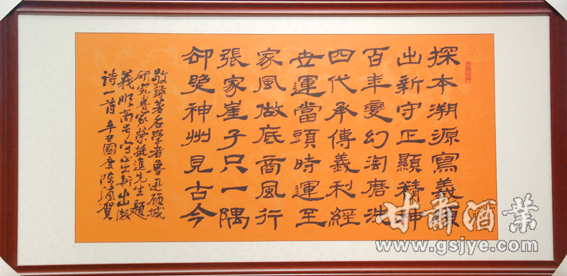 探本溯源寫義順
出新守正顯精神
百年變幻淘磨洗
四代承傳義利經
世運當頭時運至
家風做底商風行
張家崖子只一隅
卻神州見古今
敬錄著名學者魯迅顧城
研究專家榮挺進先生題
義順商號守正出新出版
詩一首辛丑國慶陳濤賀
甘肃酒業
www.gsjye.com